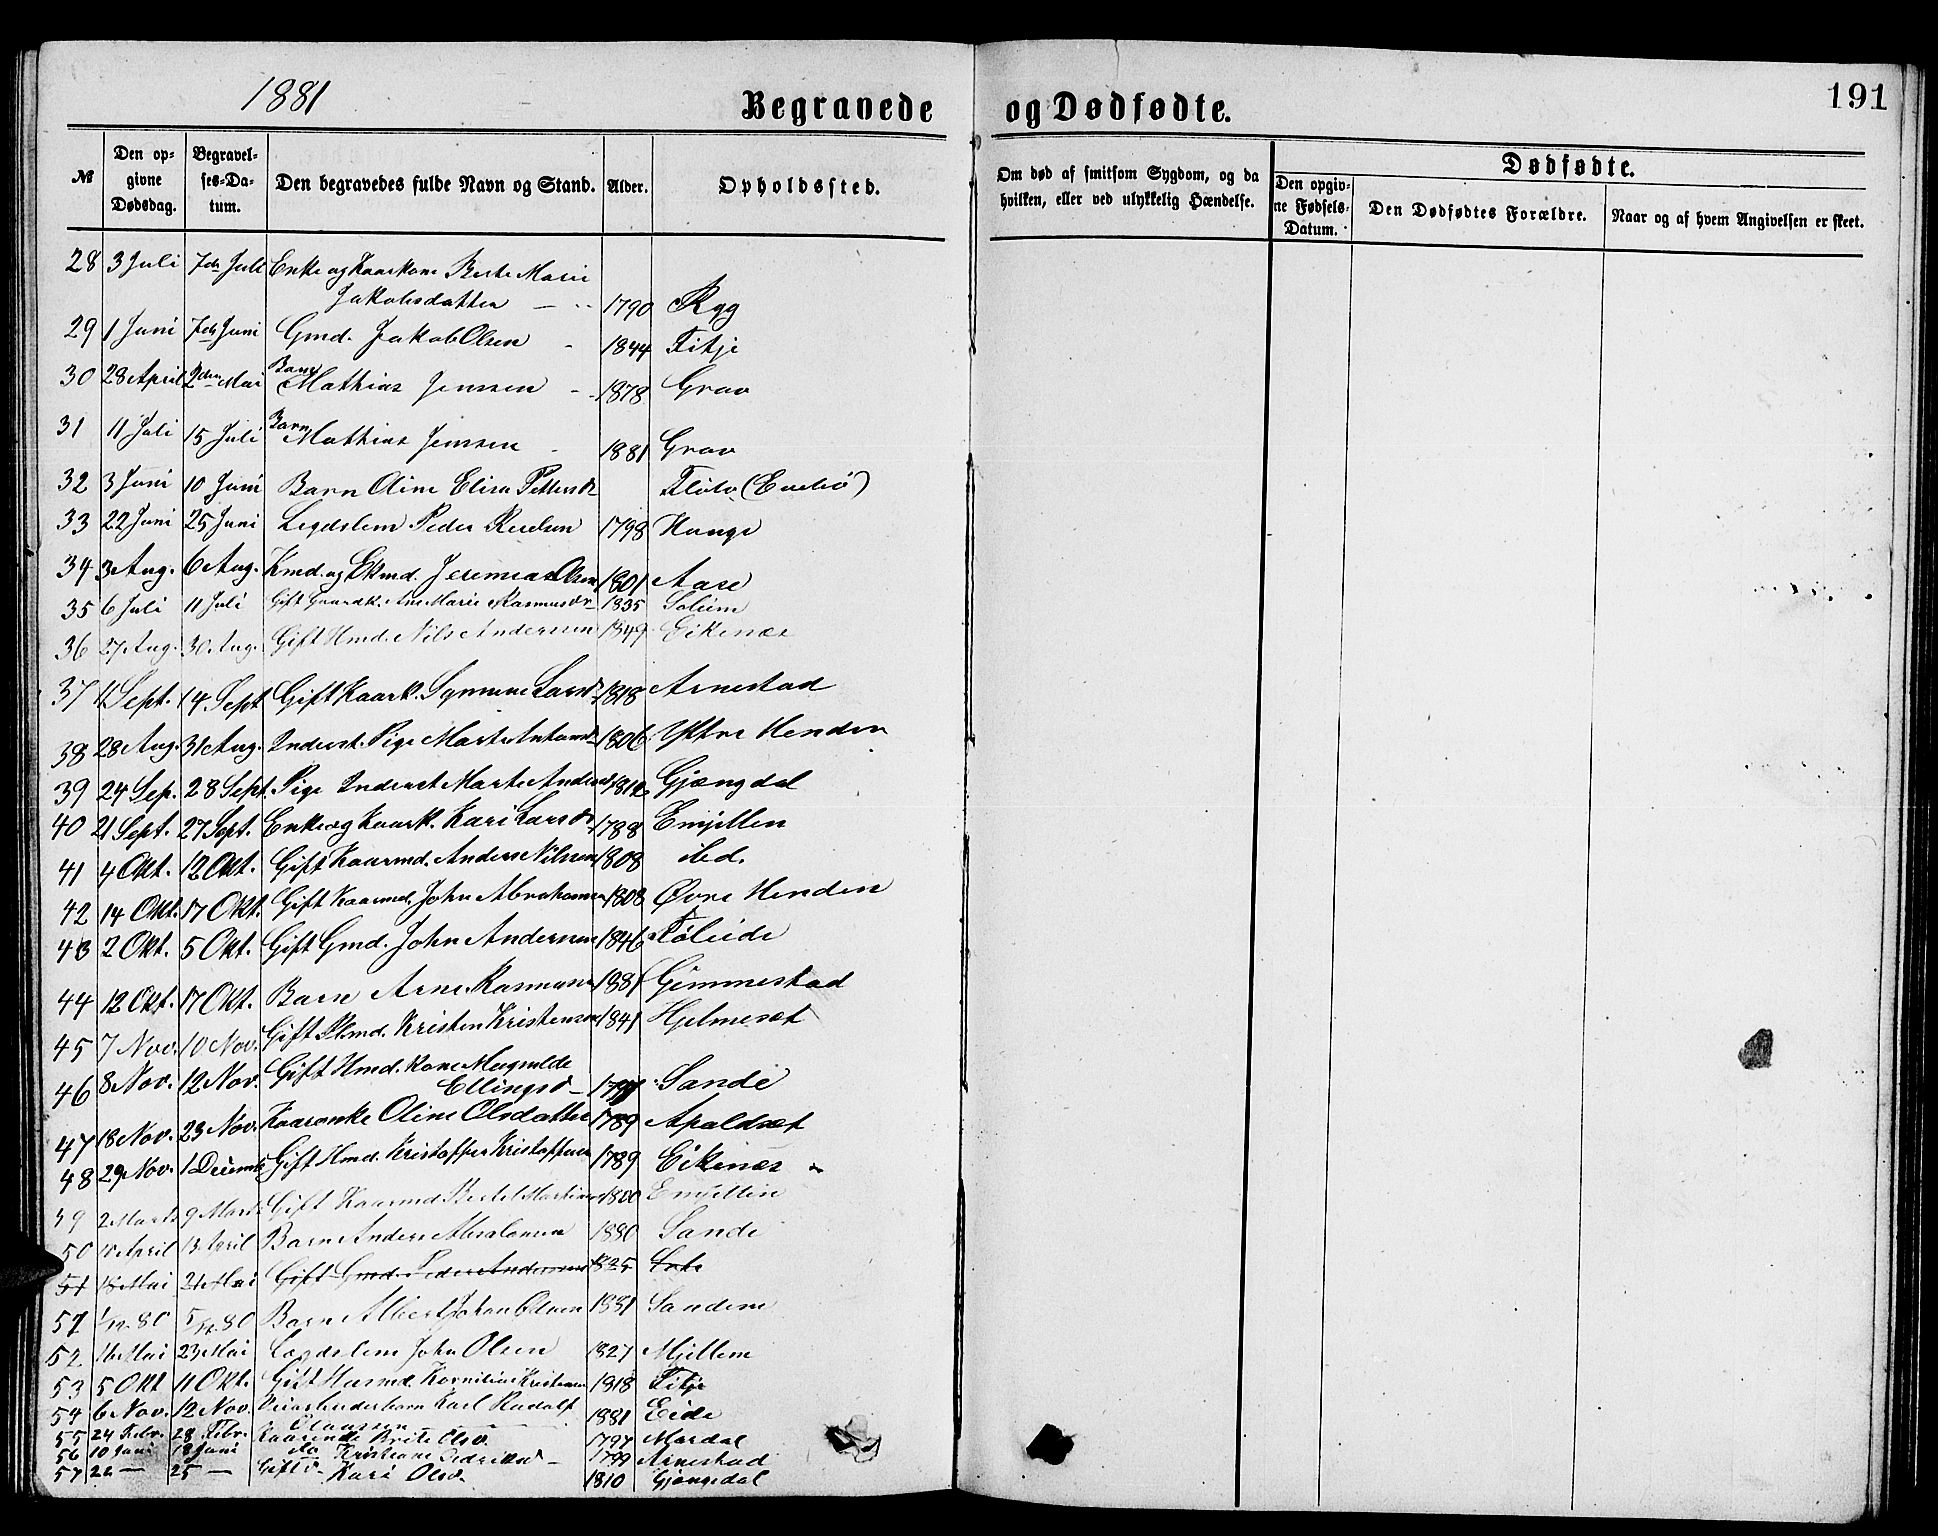 1881
Begravede og Dødfødte.
191
№
Den opgivne Dødsdag.
Begravelses-Datum.
Den begravedes fulde Navn og Stand.
Alder.
Opholdssted.
Om død af smitsom Sygdom, og da hvilken, eller ved ulykkelig Hændelse.
Dødfødte.
Den opgivne Fødsels-Datum.
Den Dødfødtes Forældre.
Naar og af hvem Angivelsen er skeet.
28 3 Juli 7de Juli Enke og Kaarkone Berte Marie
Jakobsdatter 1790 Ryg
29 1 Juni 7de Juni Gmd. Jakob Olsen 1844 Fitje
30 28 April 2den Mai Barn Mathias Jenssen 1878 Grav
31 11 Juli 15 Juli Barn Mathias Jenssen 1881 Grav
32 3 Juni 10 Juni Barn Oline Elisa Pettersdr
33 22 Juni 25 Juni Legdslem Peder 1798 Hauge
34 3 Aug. 6 Aug. Kmd. og Ekmd. Jeremias Olsen 1801 Aase
35 6 Juli 11 Juli Gift Gaardk. Ane Marie Rasmusdr 1835 Soleim
36 27 Aug. 30 Aug. Gift Hmd. Nils Anderssen 1849 Eikenæs
37 11 Sept. 14 Sept Gift Kaark. Synneve Larsdr 1818 Arnestad
38 28 Aug. 31 Aug. Inderst. Pige Marte 1806 Yttre Henden
39 24 Sep. 28 Sept. Pige Inderst Marte Andersd 1812 Gjængdal
40 21 Sept. 27 Sept. Enke og Kaark. Kari Larsdr 1788 Emjellen
41 4 Okt. 12 Okt. Gift Kaarmd. Anders Nilssen 1808 ibd.
42 14 Okt. 17 Okt. Gift Kaarmd. John Abrahamsen 1808 Øvre Henden
43 2 Okt. 5 Okt. Gift Gmd. John Anderssen 1846 Føleide
44 12 Okt. 17 Okt. Barn Arne Rasmussen 1881 Gimmestad
45 7 Nov. 10 Nov. Gift Kristen Kristensen 1841 Hjelmeset
46 8 Nov. 12 Nov. Gift Hmd. Kone Magnilde
Ellingsd Sande
47 18 Nov. 23 Nov. Kaarenke Oline Olsdatter 1789 Apaldset
48 29 Nov. 1 Decemb Gift Hmd. Kristoffer Kristoffersen 1789 Eikenæs
2 Marts 9 Marts Gift Kaarmd Bertel Martin 1800 Emjellen
50 10 April 13 April Barn Anders Absalonsen 1880 Sande
51 18 Mai 21 Mai Gift Gmd. Peder Anderssen 1825
51 1/12 80 5/12 80 Barn Albert Johan Olsen 1881 Sandene
52 16 Mai 23 Mai Lægdslem John Olsen 1827 Mjellem
53 5 Okt 11 Okt. Gift Husmd. Kornelius Kristensen 1818 Fitje
54 6 Nov. 12 Nov. Karl Rudolf
Claussen 1881 Eide
55 24 Febr. 28 Febr. Kaarenke Brite Olsd. 1797 Mardal
56 10 Juni 18 Juni do Kristiane 1799 Arnestad
57 22 — 25 — Gift Kari Olsd. 1810 Gjængedal